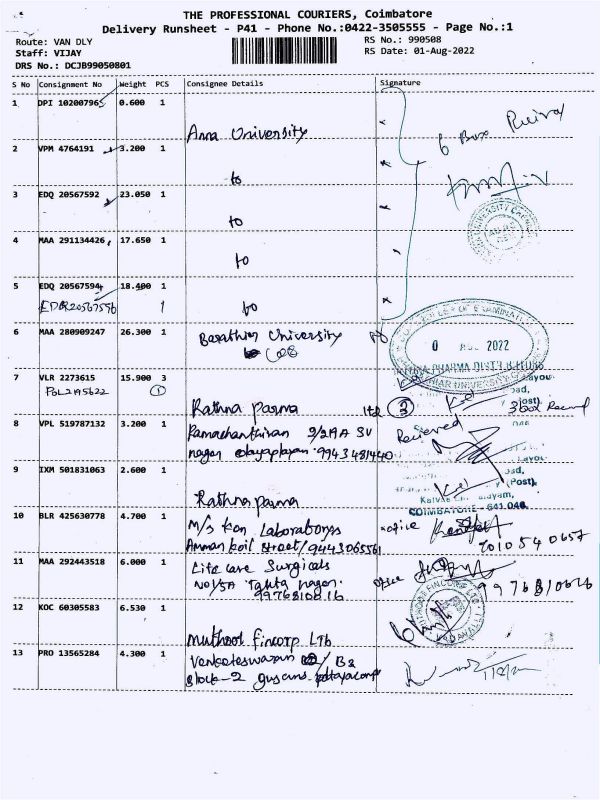 THE PROFESSIONAL COURIERS, Coimbatore
Delivery Runsheet - P41 - Phone No.:0422-3505555 - Page No.:1
Route: VAN DLY RS No.: 990508
Staff: VIJAY RS Date: 01-Aug-2022
DRS No.: DCJB99050801
S No Consignment No Weight PCS Consignee Details Signature
1 DPI 10200796 0.600 1
Anna University 6 Box
2 VPM 4764191 3.200 1
to
3 EDQ 20567592 23.050 1
to
4 MAA 291134426 17.650 1
to
5 EDQ 20567594 18.400 1
EDQ 20567596 1 to
6 MAA 280909247 26.300 1 Barathiar University
COE
0 AUG 2022
7 VLR 2273615 15.900 3
POL2195622 1
Rathna Parma Ltd 3 3 box
8 VPL 519787132 3.200 1 Ramachanthiran 2/219A SV Recieved
nagar 9943481440
9 IXM 501831063 2.600 1
Rathna parma
COIMBATORE - 641 046
10 BLR 425630778 4.700 1 M/s Ken Laboratorys office
Amman koil street/9443065561 7010540657
11 MAA 292443518 6.000 1 Life care Surgicals office
No1/5A nagar. 9976810616
9976810616
12 KOC 60305583 6.530 1
Muthoot Fincorp Ltd
13 PRO 13565284 4.300 1 Venkateswaran / B2
Block-2